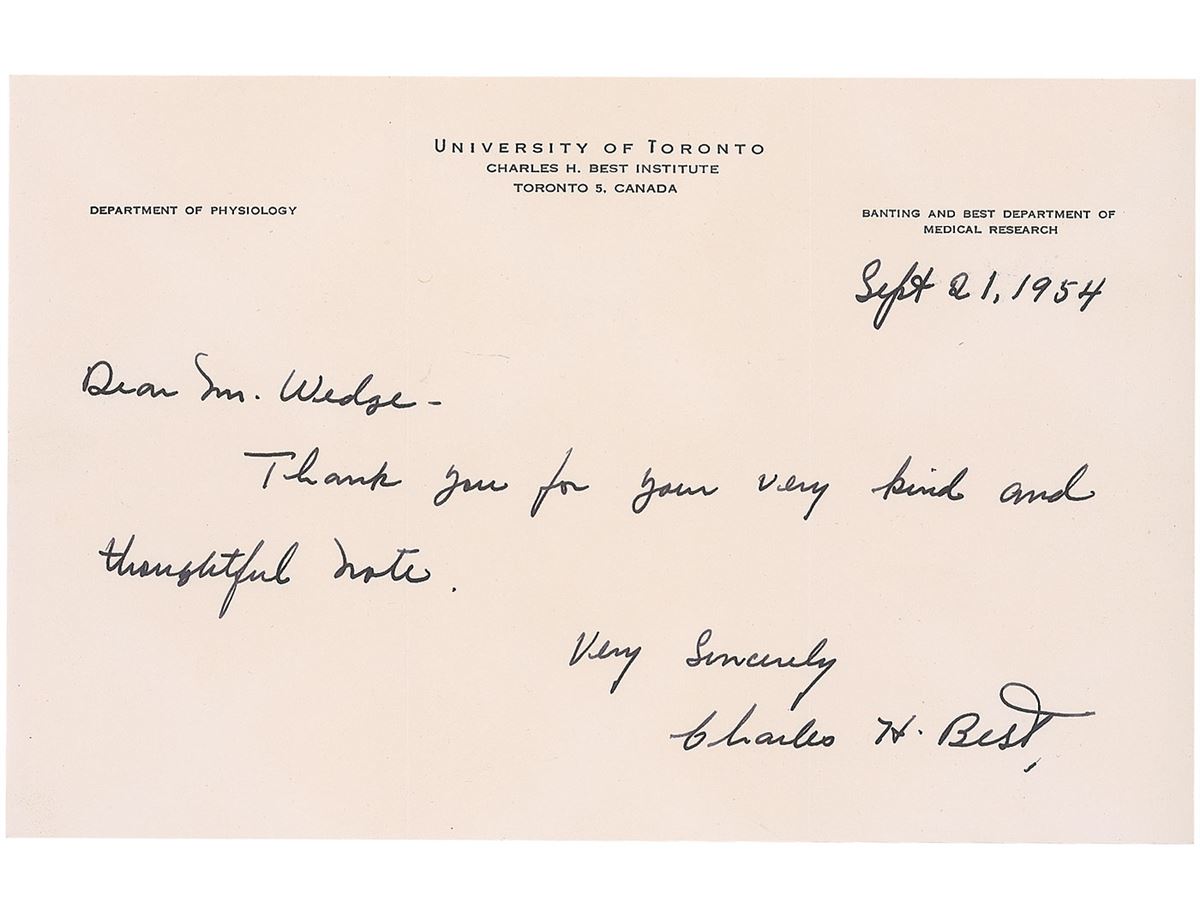 UNIVERSITY OF TORONTO
CHARLES H. BEST INSTITUTE
TORONTO 5, CANADA
DEPARTMENT OF PHYSIOLOGY
BANTING AND BEST DEPARTMENT OF
MEDICAL RESEARCH
Sept 21, 1954
Dear Mr. Wedge -
Thank you for your very kind and
thoughtful note.
Very Sincerely
Charles H. Best